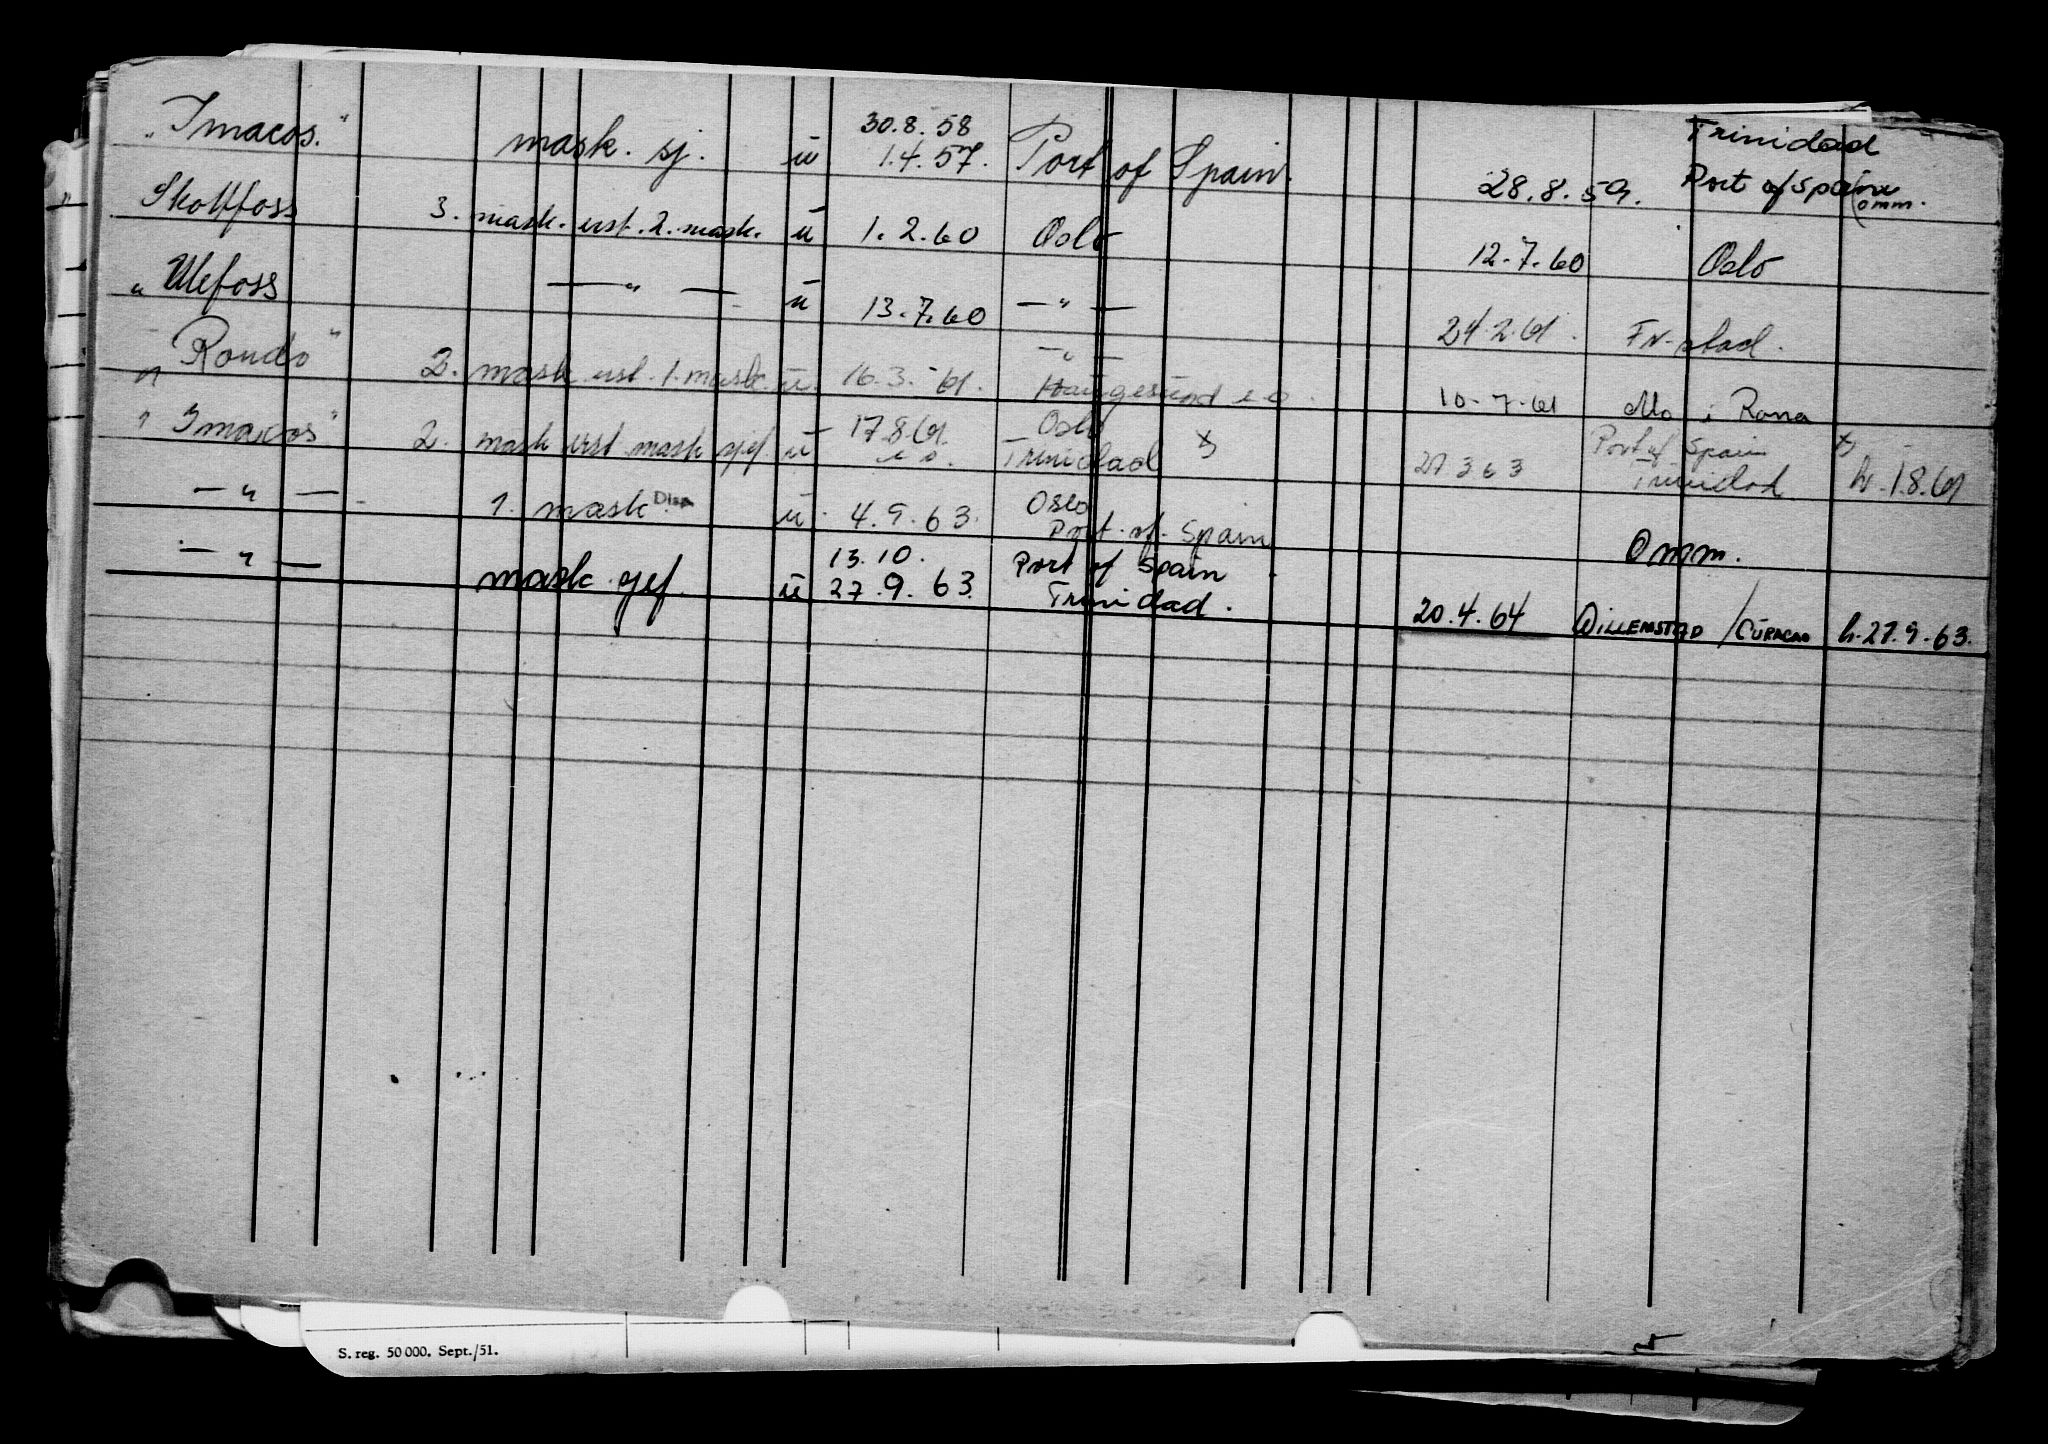 "Imacos." mask. sj. ū 30.8.58 1.4.57. Port of Spain. 28.8.59. Trinidad Port of Spain omm.
Skotfoss 3. mask. ust. 2. mask. ū 1.2.60 Oslo 12.7.60 Oslo
" Ulefoss — " — ū 13.7.60 — " — 24.2.61. Fr.stad.
" Rondo " 2. mask. ust. 1. mask. ū. 16.3.61. — " — Haugesund e.o. 10.7.61 Mo i Rana
" Imacos " 2. mask ust mask gjef ū 17.8.61. e o. Oslo Trinidad x) 27 3 63 Port of Spain Trinidad x) h. 1.8.61
— " — 1. mask. Disp ū. 4.9.63. Oslo Port. of. Spain Omm.
— " — mask. gjef. ū 13.10. 27.9.63. Port of Spain Trinidad. 20.4.64 WILLEMSTAD / CURACAO h. 27.9.63.
S. reg. 50 000. Sept./51.